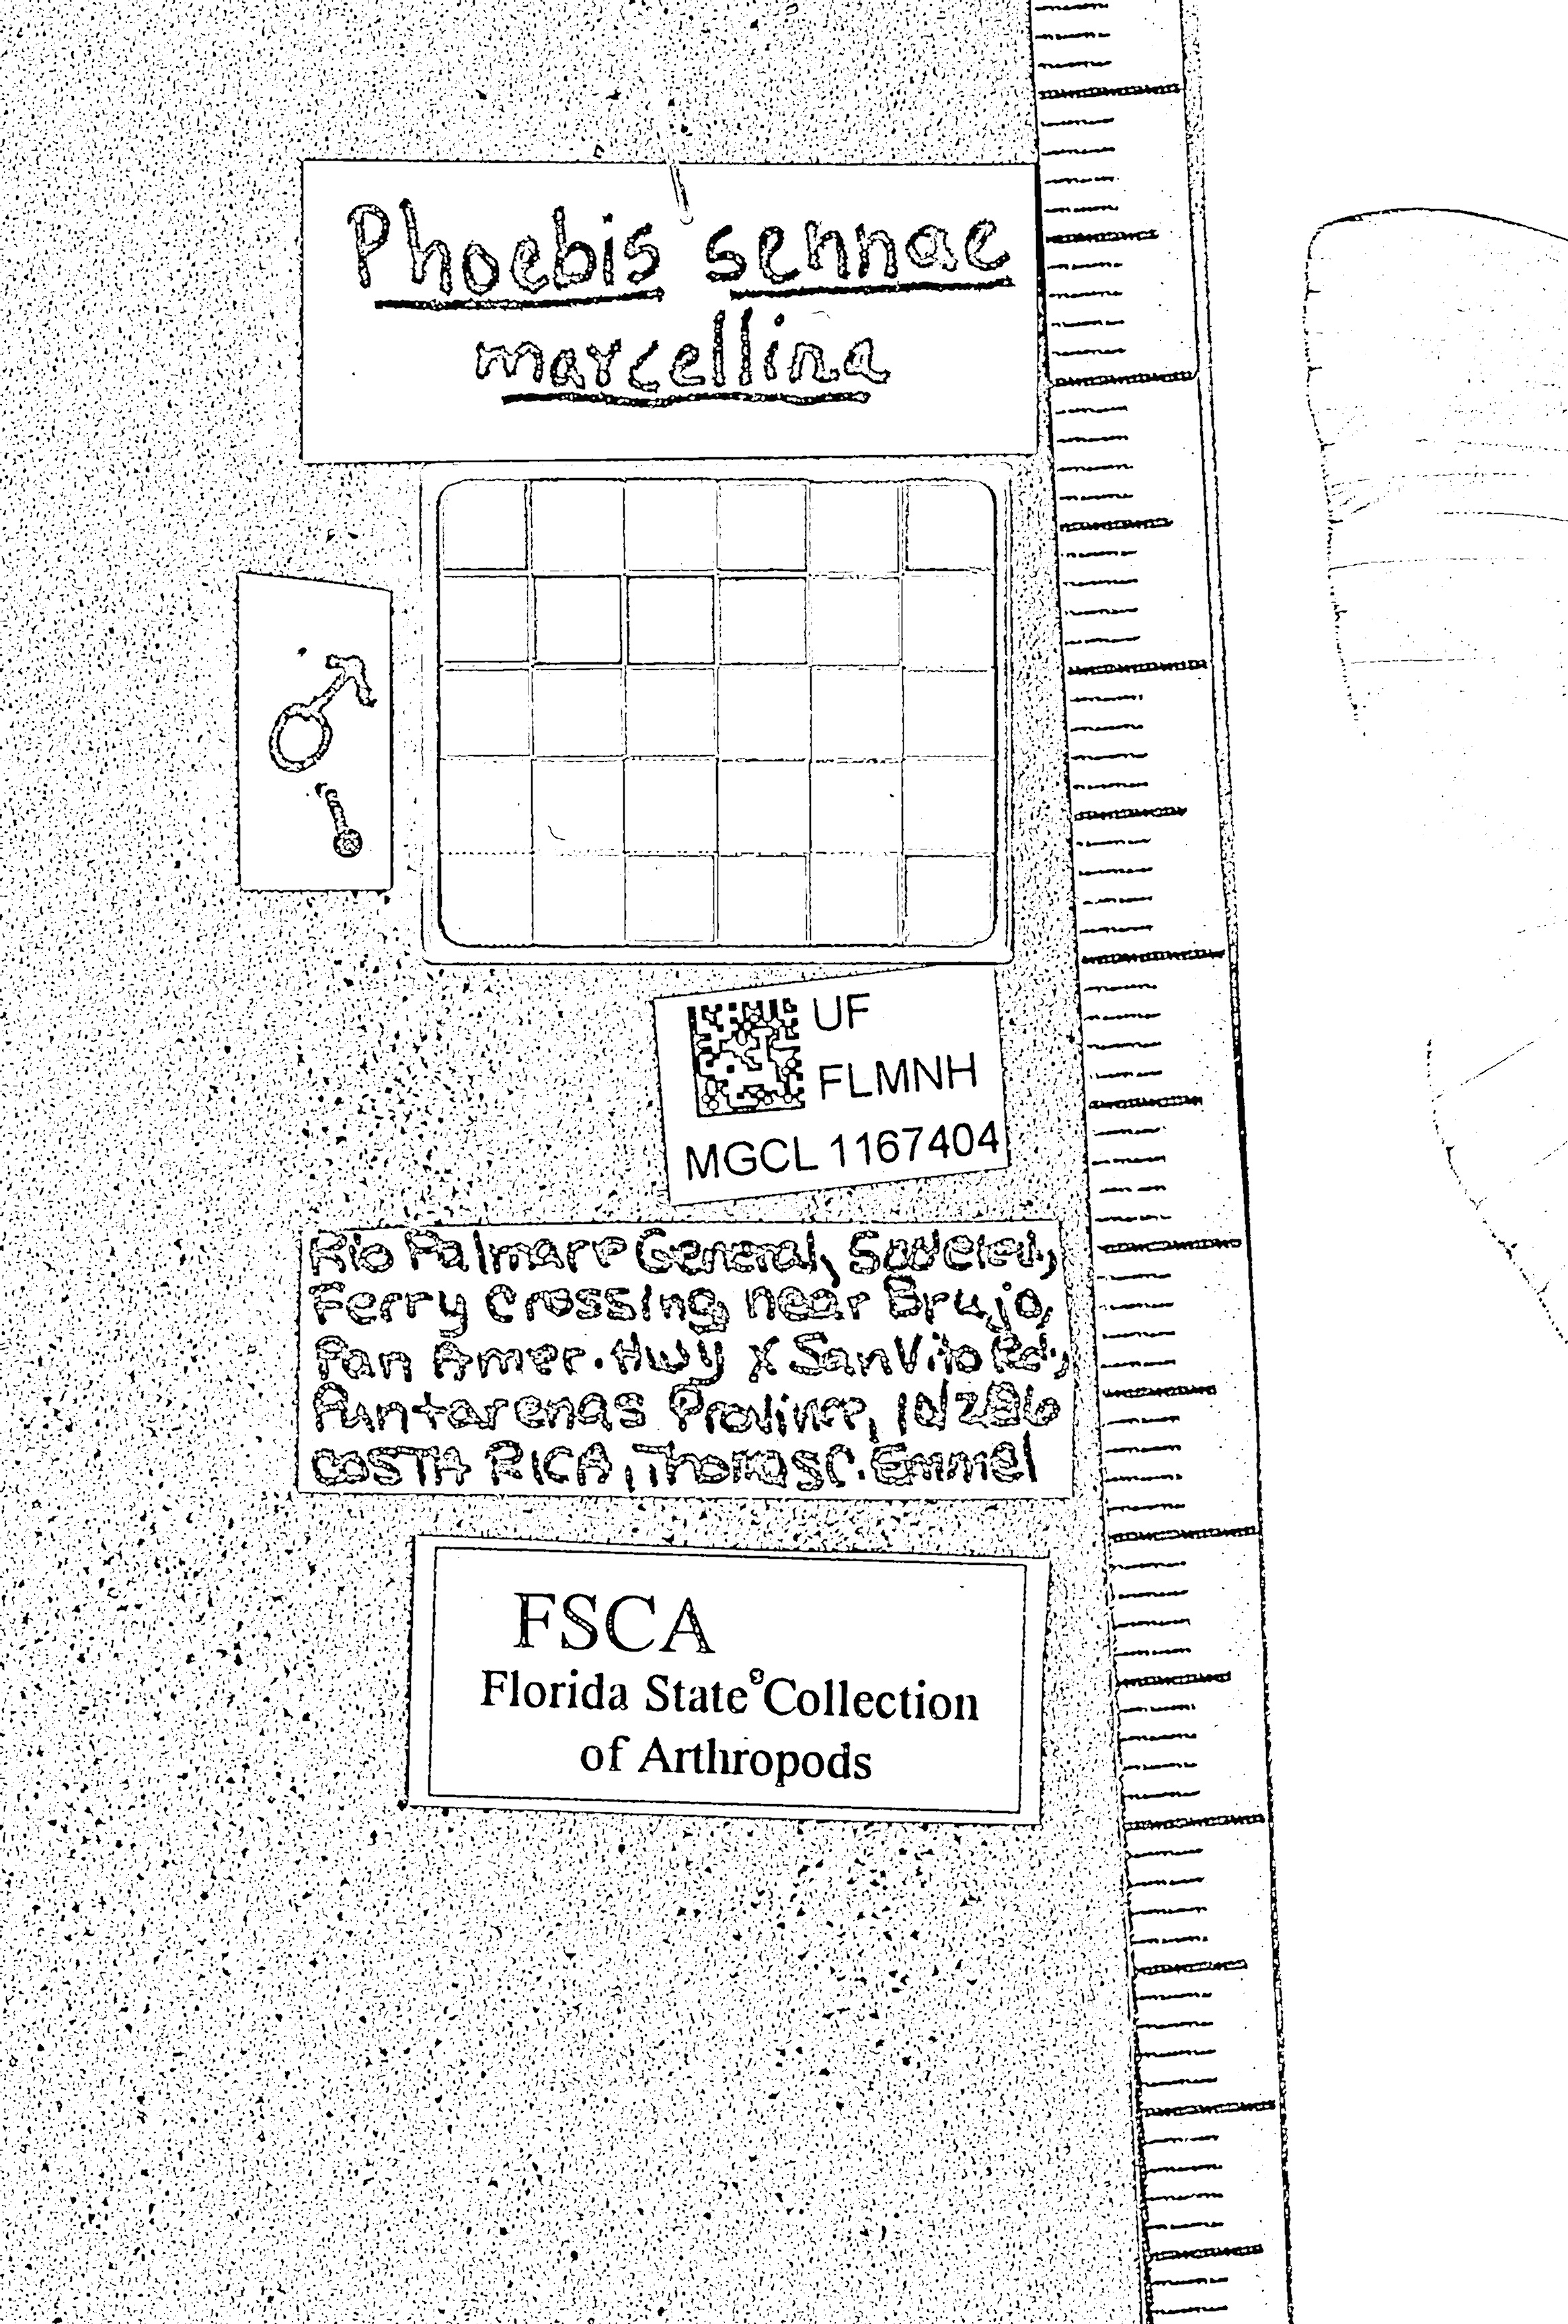 Phoebis sennae
marcellina
♂
UF
FLMNH
MGCL 1167404
Rio General,
Ferry crossing, near Brujo,
Pan Amer. Hwy x San Vito Rd.,
Puntarenas Province,
COSTA RICA, Thomas C. Emmel
FSCA
Florida State Collection
of Arthropods